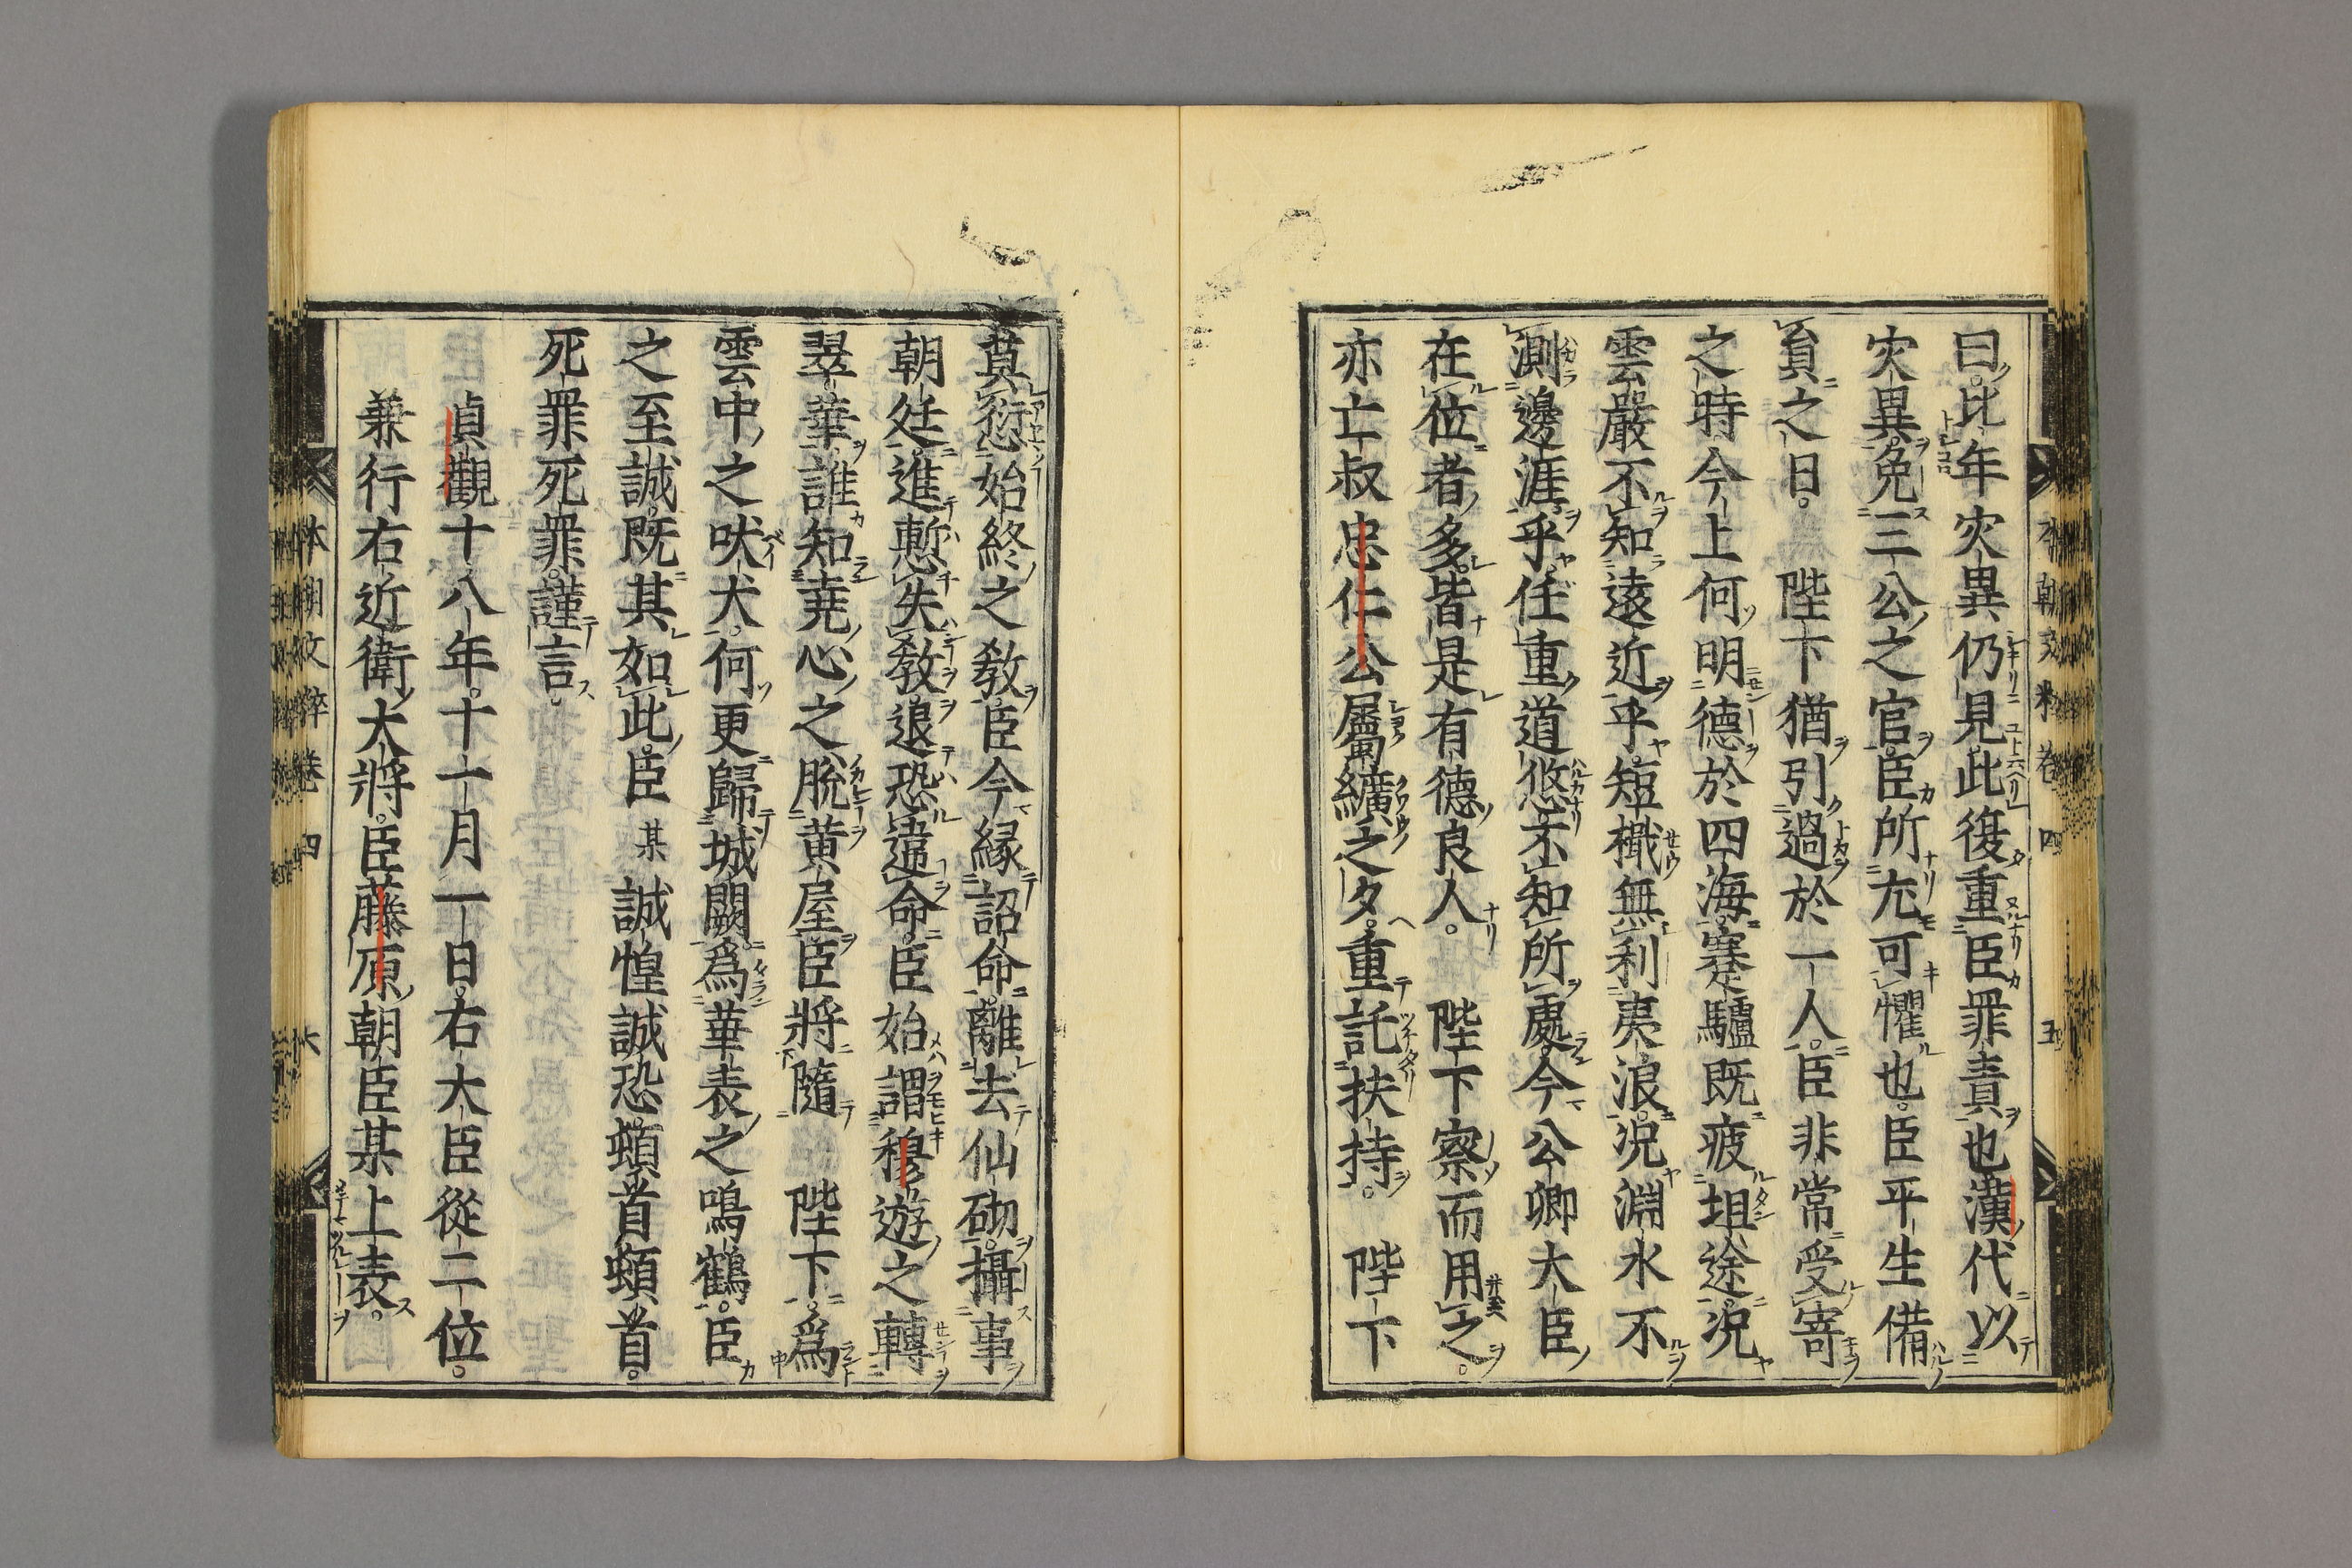 曰比年灾異仍見此復重臣罪責也漢代以
灾異免三公之官臣所尢可懼也臣平生備
員之日 陛下猶引過於一人臣非常受寄
之時今上何明德於四海蹇驢既疲坦途況
雲嚴不知逺近乎短檝無利夷浪況淵水不
測邊涯乎任重道悠不知所處今公卿大臣
在位者多皆是有德良人 陛下察而用之
亦亡叔忠仁公屬纊之夕重託扶持 陛下
莫愆始終之教臣今縁詔命離去仙砌攝事
朝廷進慙失教退恐違命臣始謂穆遊之轉
翠華誰知堯心之脫黄屋臣將隨 陛下爲
雲中之吠犬何更歸城闕爲華表之鳴鶴臣
之至誠既其如此臣某誠惶誠恐頓首頓首
死罪死罪謹言
貞觀十八年十一月一日右大臣從二位
兼行右近衛大將臣藤原朝臣某上表
本朝文粹卷四 五
本朝文粹卷四 六